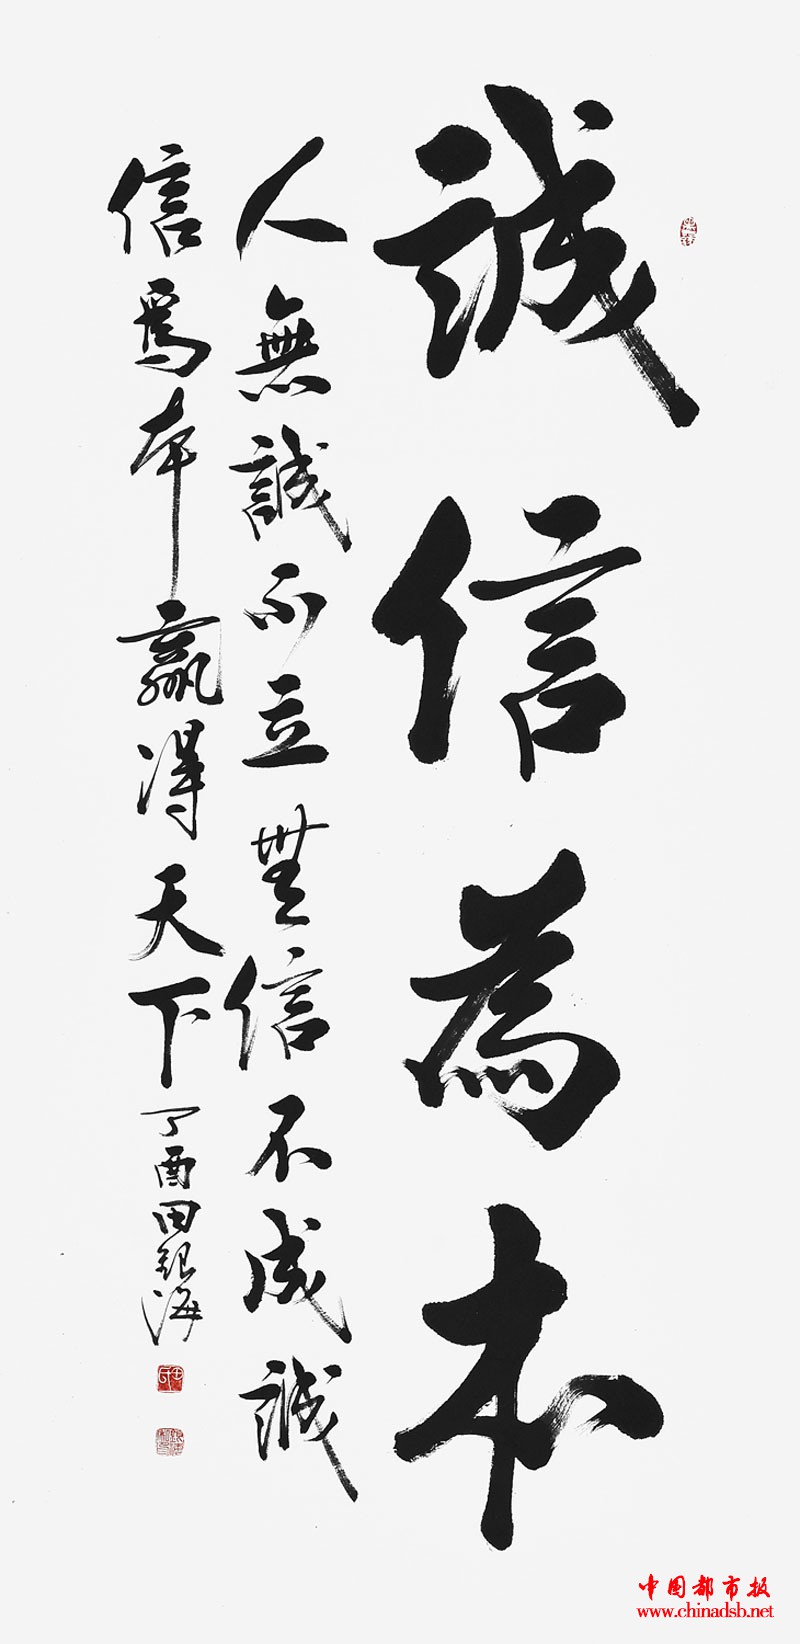 誠信為本
人無誠不立無信不成誠
信為本贏得天下丁酉田銀海
中国都市报
www.chinadsb.net